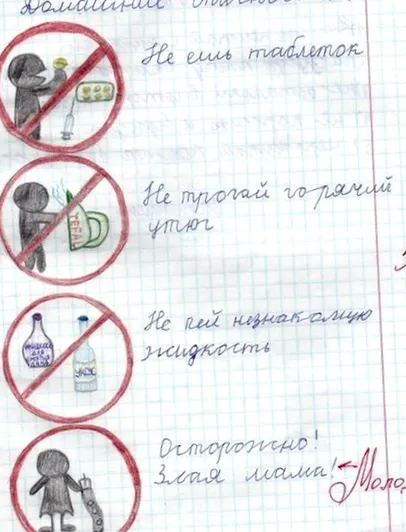 Домашние
Не ешь таблеток
Не трогай горячий
утюг
TEFAL
Не пей незнакомую
жидкость
УКСУС
Осторожно!
Злая мама!